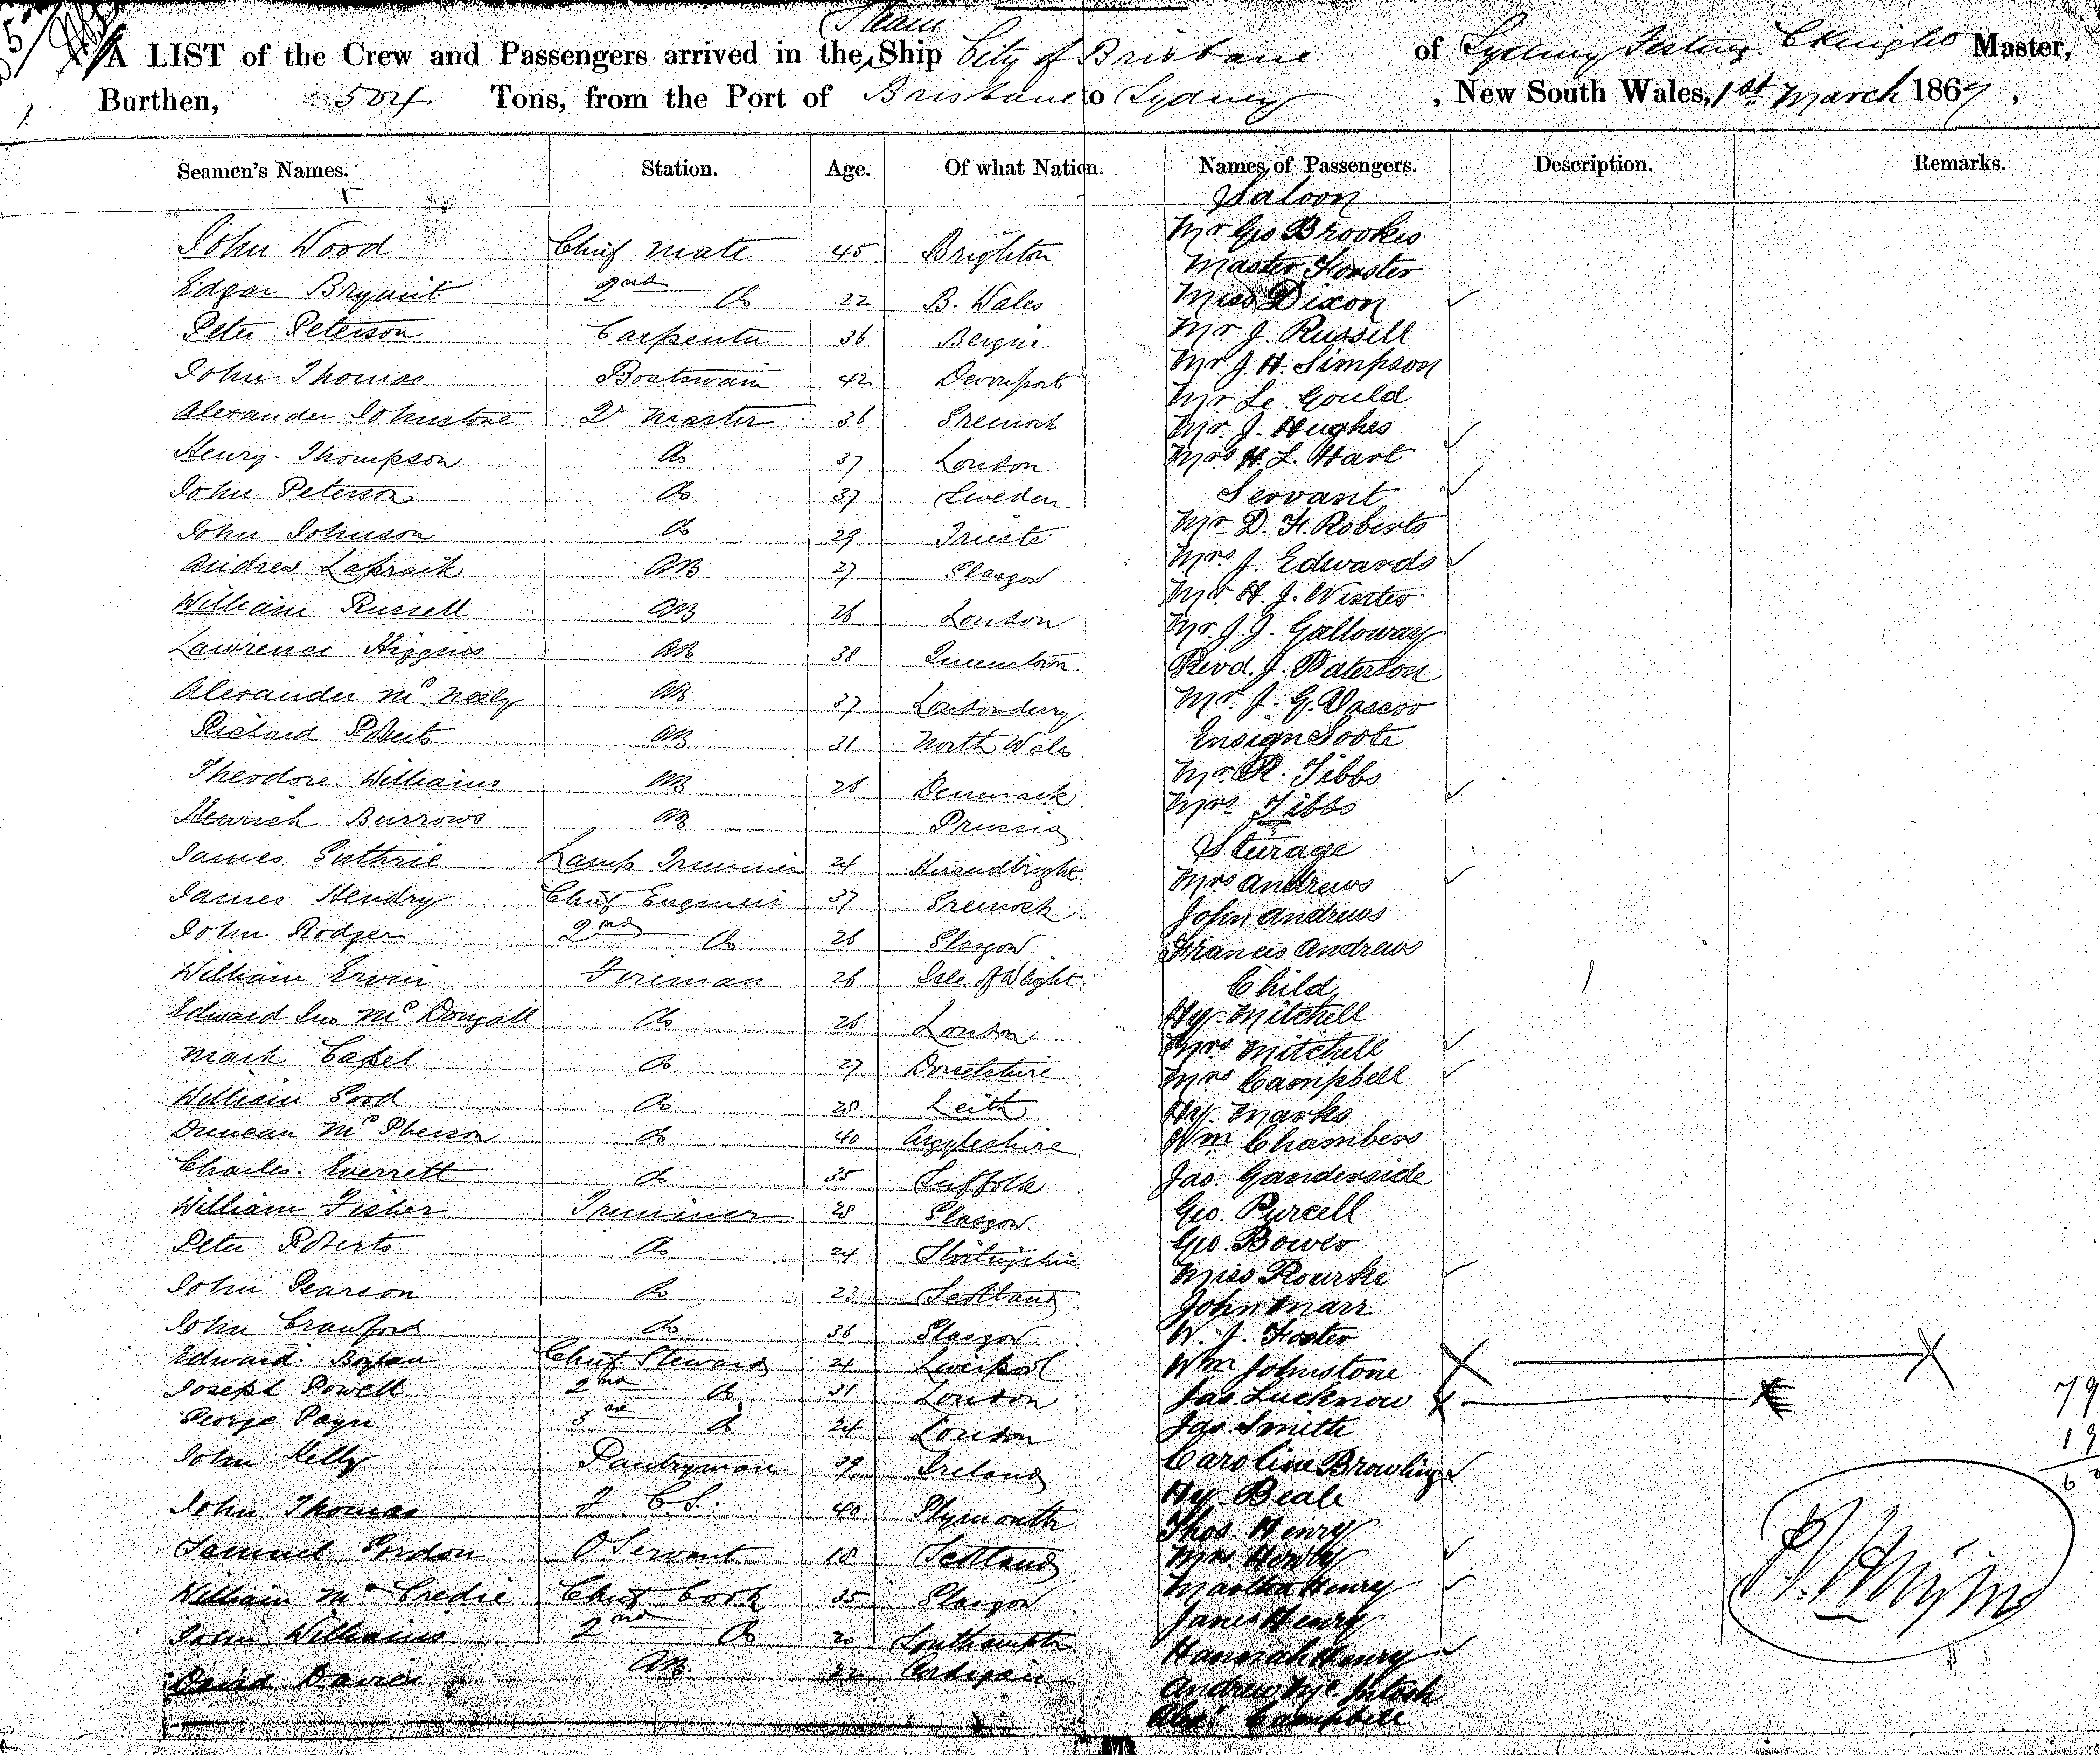 Steam
A LIST of the Crew and Passengers arrived in the Ship City of Brisbane of Sydney Knight Master,
Burthen, 504 Tons, from the Port of Brisbane to Sydney, New South Wales, 1st March 1867,
Seamen's Names. Station. Age. Of what Nation. Names of Passengers. Description. Remarks.
Saloon
John Wood Chief Mate 45 Brighton Mr Geo Brookes
Master Forster
Edgar Bryant 2nd Do 22 B. Wales Miss Dixon
Peter Peterson Carpenter 36 Mr J. Russell
John Thomas Boatswain 42 Devonport Mr J H. Simpson
Mr Le Gould
Alexander Johnstone Qr Master 36 Greenock Mr. J. Hughes
Henry Thompson Do 37 London Mrs H. L. Hart
John Peterson Do 37 Sweden Servant
John Johnson Do 29 Trieste Mr D. F. Roberts
Andrew Lapraik AB 27 Glasgow Mrs J. Edwards
William Russell AB 26 London Mr H. J. Winter
Mr. J. J. Galloway
Lawrence Higgins AB 38 Queenstown Revd. J. Waterson
Alexander Mc Neely AB 37 Londonderry Mr. J. G.
Richard Roberts AB 31 North Wales Ensign Foote
Mr. R. Tibbs
Theodore Williams AB 26 Denmark Mrs Tibbs
Henrich Burrows AB Prussia
James Guthrie Lamp Trimmer 24 Steerage
James Hendry Chief Engineer 37 Greenock Mrs Andrews
John Andrews
John Rodger 2nd Do 26 Glasgow Francis Andrews
William Irvin Foreman 26 Isle of Wight Child
Edward Jno McDougall Do 26 London Hy. Mitchell
Mark Capel Do 27 Dorsetshire Mrs Mitchell
Mrs Campbell
William Good Do 28 Leith Hy. Marks
Duncan McPherson Do 40 Argyleshire Wm Chambers
Charles Everrett Do 35 Suffolk Jas. Gandenside
William Fisher Trimmer 28 Glasgow Geo. Purcell
Peter Roberts Do 24 Geo. Bower
Miss Rourke
John Pearson Do 23 Scotland John Marr
John Crawford Do 36 Glasgow W. J. Foster
Edward Boylan Chief Steward 21 Liverpool Wm Johnstone
Joseph Powell 2nd Do 31 London Jas Lucknow
George Payn 3rd Do 24 London Jas. Smith
79
19
John Kelly Pantryman 39 Ireland Caroline Browling
Hy. Beale
John Thomas F. C. S. 40 Plymouth Thos. Henry
Samuel Gordon O Servant 18 Scotland Mrs Henry
William McCredie Chief Cook 35 Glasgow Martha Henry
Jane Henry
John Williams 2nd Do 20 Southampton Hannah Henry
David Davies AB Cardigan Andrew Mc Intosh
Campbell